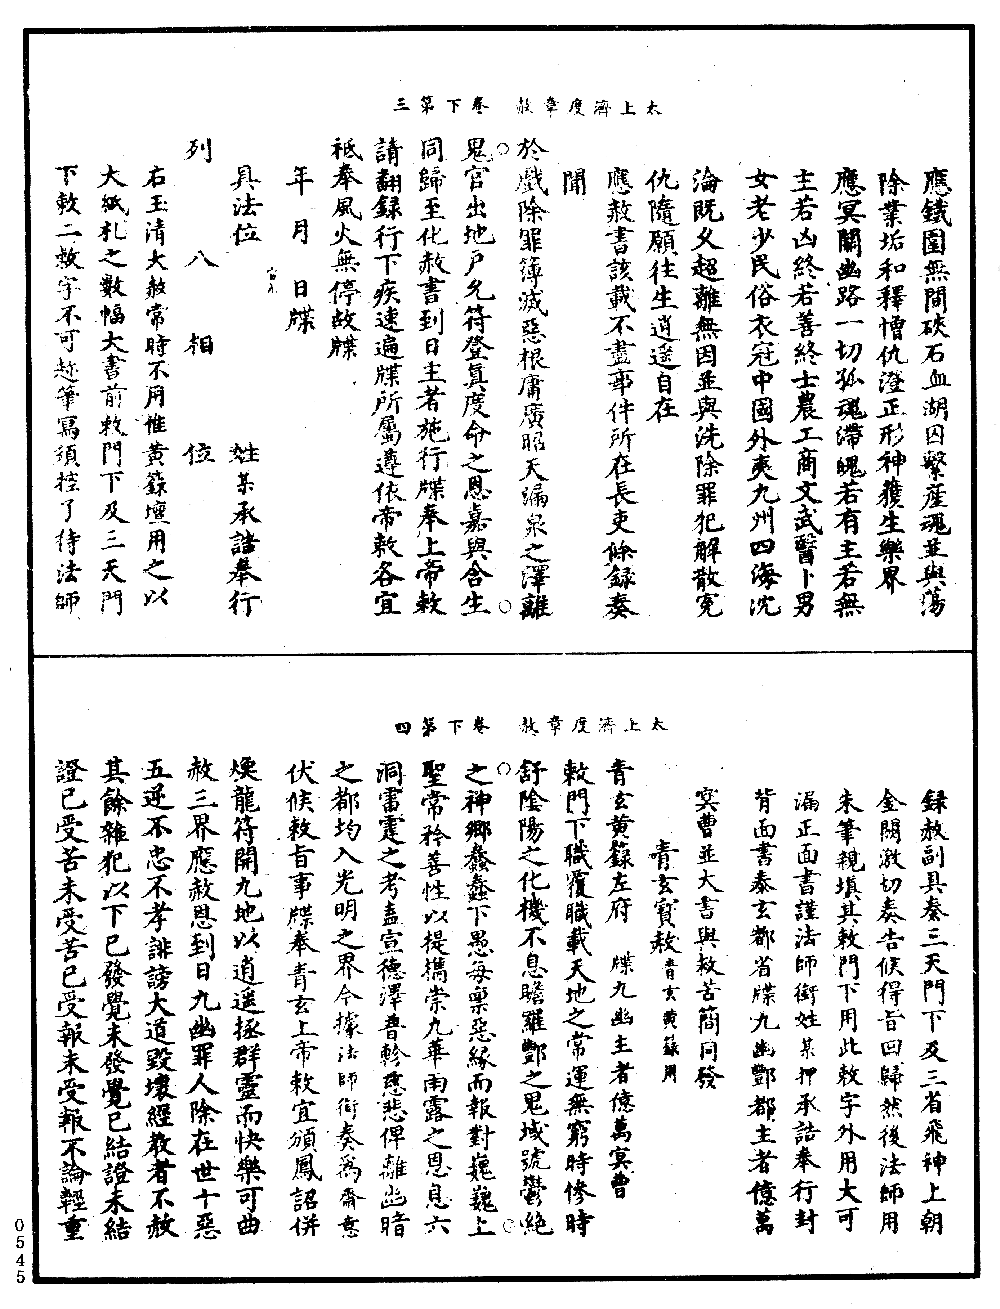 太上濟度章赦　卷下第三
應鐵圍無間硤石血湖囚繫產魂並與蕩
除業垢和釋憎仇澄正形神獲生樂界
應冥關幽路一切孤魂滯魄若有主若無
主若凶終若善終士農工商文武醫卜男
女老少民俗衣冠中國外夷九州四海沈
淪既久超離無因並與洗除罪犯解散冤
仇隨願往生逍遙自在
應赦書該載不盡事件所在長吏條錄奏
聞
於戲除罪簿滅惡根庸廣昭天漏泉之澤離
鬼官出地戶允符登真度命之恩嘉與含生
同歸至化赦書到日主者施行牒奉上帝敕
請翻錄行下疾速遍牒所屬遵依帝敕各宜
祗奉風火無停故牒
年　月　日牒
具法位　姓某承誥奉行
列　八　相　位
右玉清大赦常時不用惟黃籙壇用之以
大紙札之數幅大書前敕門下及三天門
下敕二敕字不可越筆寫須控了侍法師
太上濟度章赦　卷下第四
錄赦副具奏三天門下及三省飛神上朝
金闕激切奏告候得旨回歸然後法師用
朱筆親填其敕門下用此敕字外用大可
漏正面書謹法師銜姓某押承誥奉行封
背面書泰玄都省牒九幽酆都主者億萬
冥曹並大書與救苦簡同發
青玄寶赦青玄黃籙用
青玄黃籙左府　牒九幽主者億萬冥曹
敕門下職覆職載天地之常運無窮時修時
舒陰陽之化機不息瞻羅酆之鬼域號鬱絕
之神鄉蠢蠢下愚每稟惡緣而報對巍巍上
聖常矜善性以提攜崇九華雨露之恩息六
洞雷霆之考盍宣德澤普軫慈悲俾離幽暗
之都均入光明之界今據法師銜奏為齋意
伏候敕旨事牒奉青玄上帝敕宜頒鳳詔併
煥龍符開九地以逍遙拯群靈而快樂可曲
赦三界應赦恩到日九幽罪人除在世十惡
五逆不忠不孝誹謗大道毀壞經教者不赦
其餘雜犯以下已發覺未發覺已結證未結
證已受苦未受苦已受報未受報不論輕重
0545